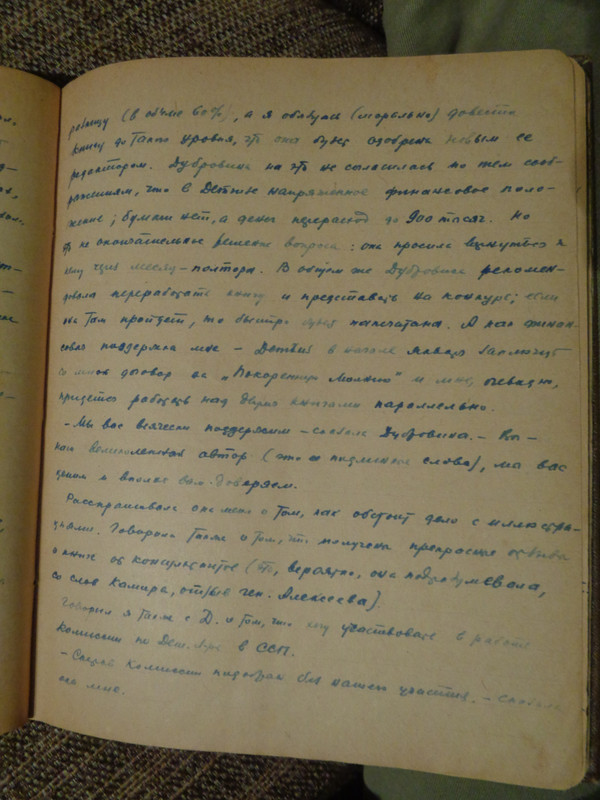 (в объеме 60%), а я обязуюсь (морально) довести
книгу до такого уровня, что она будет одобрена новым ее
редактором. Дубровина на это не согласилась по тем сооб-
ражениям, что в Детгизе напряженное финансовое поло-
жение; бумаги нет, а денег перерасход до 900 тысяч. Но
это не окончательное решение вопроса: она просила вернуться к
нему через месяц-полтора. В общем же Дубровина рекомен-
довала переработать книгу и представить на конкурс; если
она там пройдет, то быстро будет напечатана. А как финан-
совая поддержка мне – Детгиз в начале января заключит
со мной договор на „Покорение Молнии" и мне, очевидно,
придется работать над двумя книгами параллельно.
– Мы вас всячески поддержим – сказала Дубровина. – Вы –
наш великолепный автор (это ее подлинные слова), мы вас
ценим и вполне вам доверяем.
Расспрашивала она меня о том, как обстоит дело с иллюстра-
циями. Говорила также о том, что получены прекрасные отзывы
о книге об консультантов (тут, вероятно, она подразумевала,
со слов Камира, отзыв ген. Алексеева).
Говорил я также с Д. о том, что хочу участвовать в работе
Комиссии по Дет. Лит. в ССП.
– Списки Комиссии подобраны без нашего участия. – сказала
она мне.